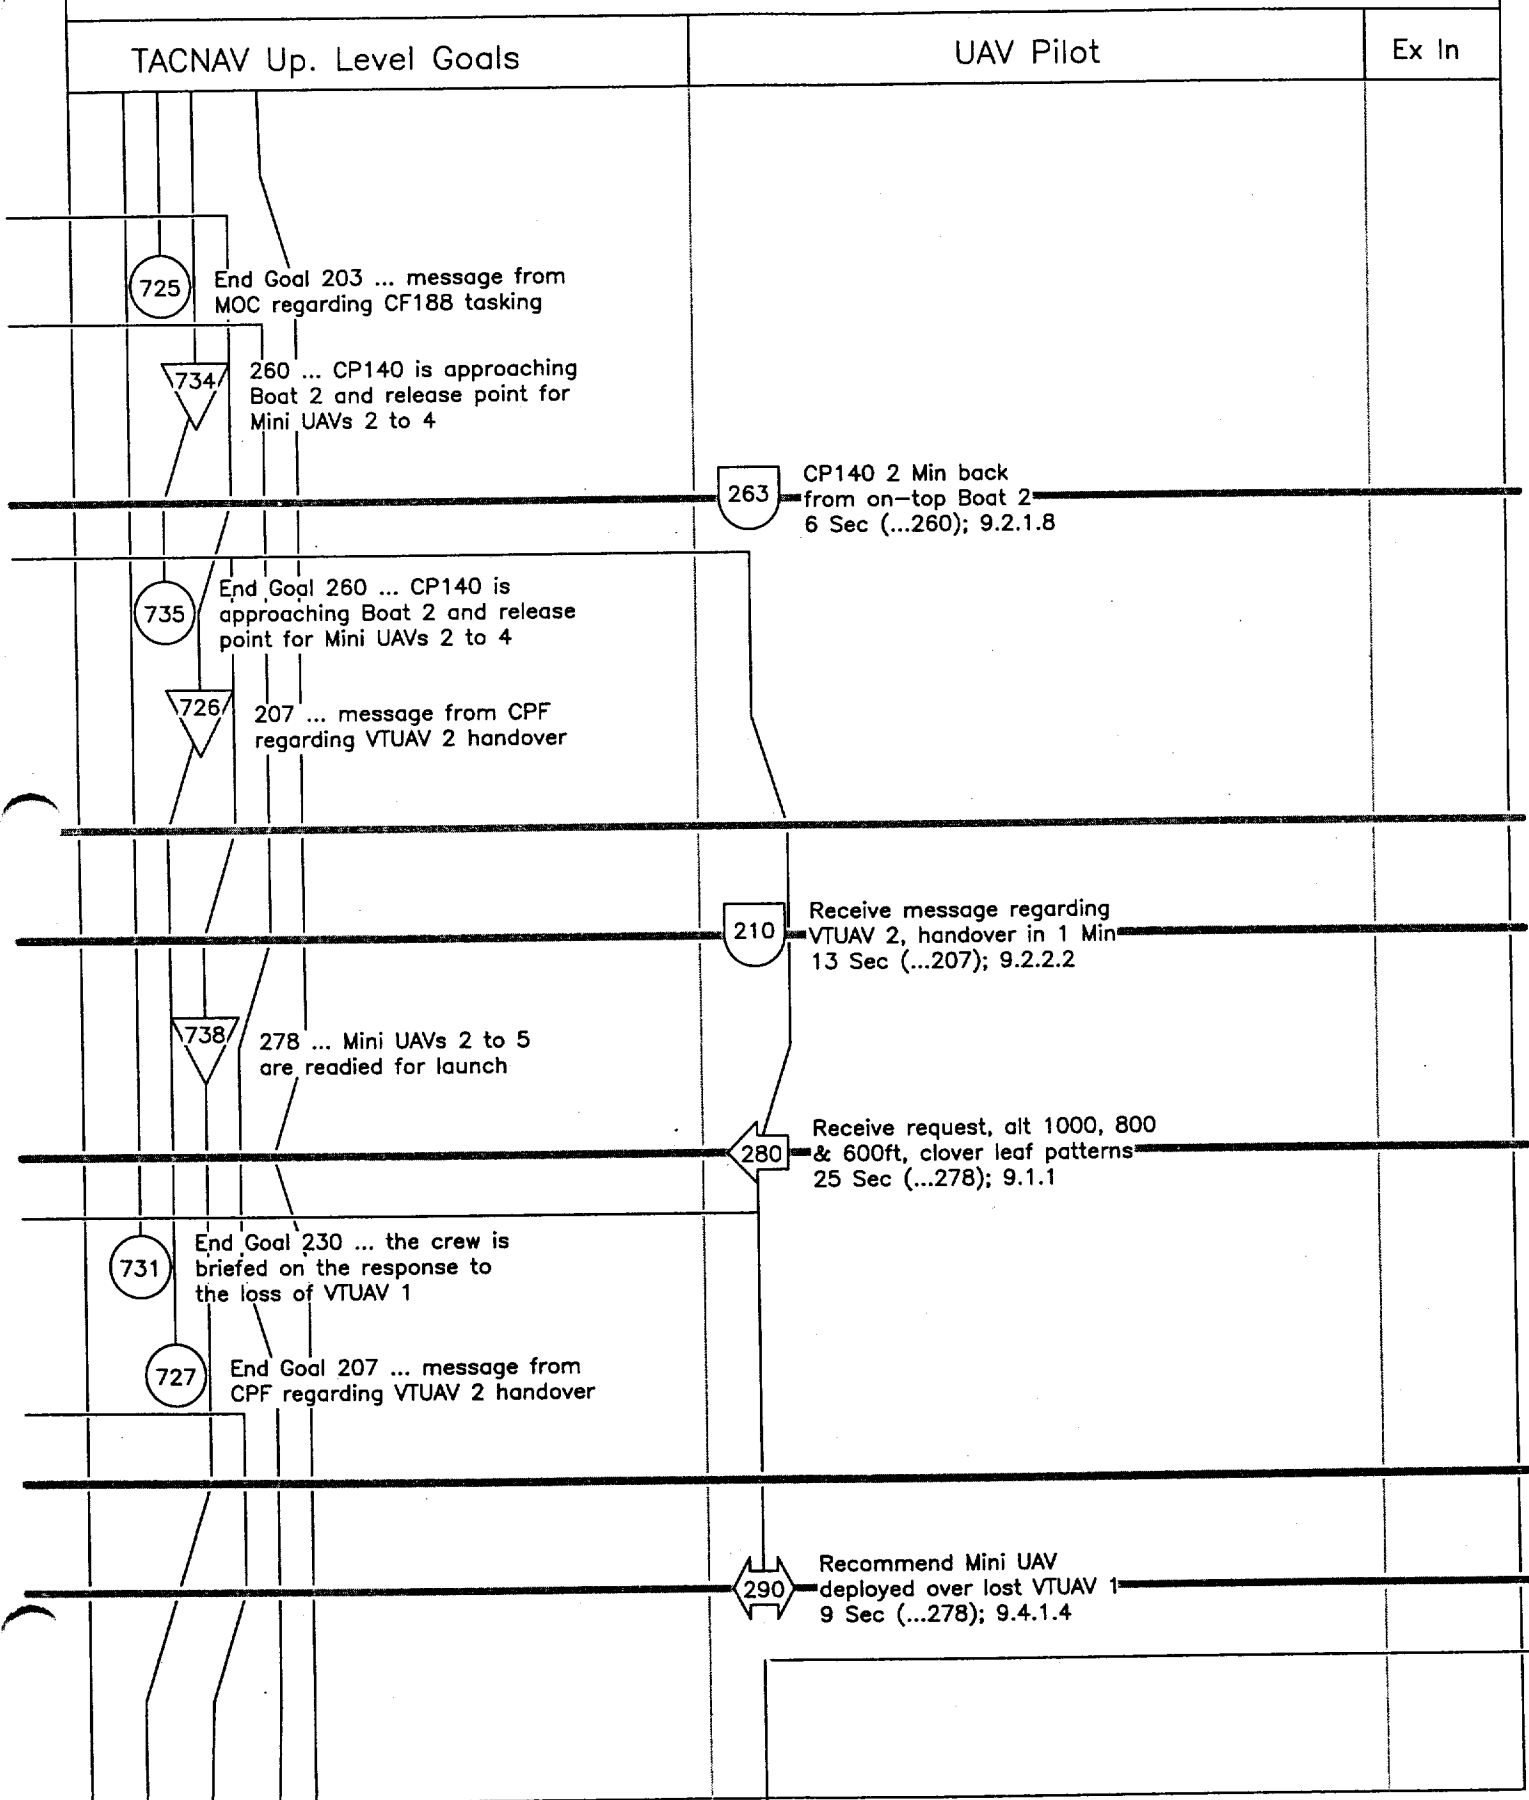 TACNAV Up. Level Goals
UAV Pilot
Ex In
725
End Goal 203 ... message from
MOC regarding CF188 tasking
734
260 ... CP140 is approaching
Boat 2 and release point for
Mini UAVs 2 to 4
263
CP140 2 Min back
from on-top Boat 2
6 Sec (...260); 9.2.1.8
735
End Goal 260 ... CP140 is
approaching Boat 2 and release
point for Mini UAVs 2 to 4
726
207 ... message from CPF
regarding VTUAV 2 handover
210
Receive message regarding
VTUAV 2, handover in 1 Min
13 Sec (...207); 9.2.2.2
738
278 ... Mini UAVs 2 to 5
are readied for launch
280
Receive request, alt 1000, 800
& 600ft, clover leaf patterns
25 Sec (...278); 9.1.1
731
End Goal 230 ... the crew is
briefed on the response to
the loss of VTUAV 1
727
End Goal 207 ... message from
CPF regarding VTUAV 2 handover
290
Recommend Mini UAV
deployed over lost VTUAV 1
9 Sec (...278); 9.4.1.4